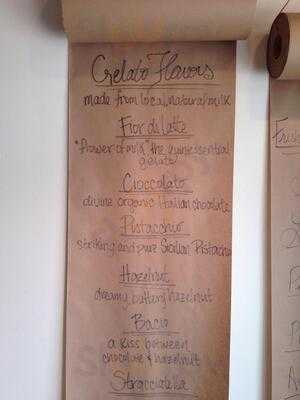 Gelato Flavors
made from local, natural milk
Fior di latte
"flower of milk" the quinessential
gelato
Cioccolato
divine organic Italian chocolate
Pistacchio
striking and pure Sicilian Pistachio
Hazelnut
dreamy, buttery hazelnut
Bacio
a kiss between
chocolate & hazelnut
Stracciatella